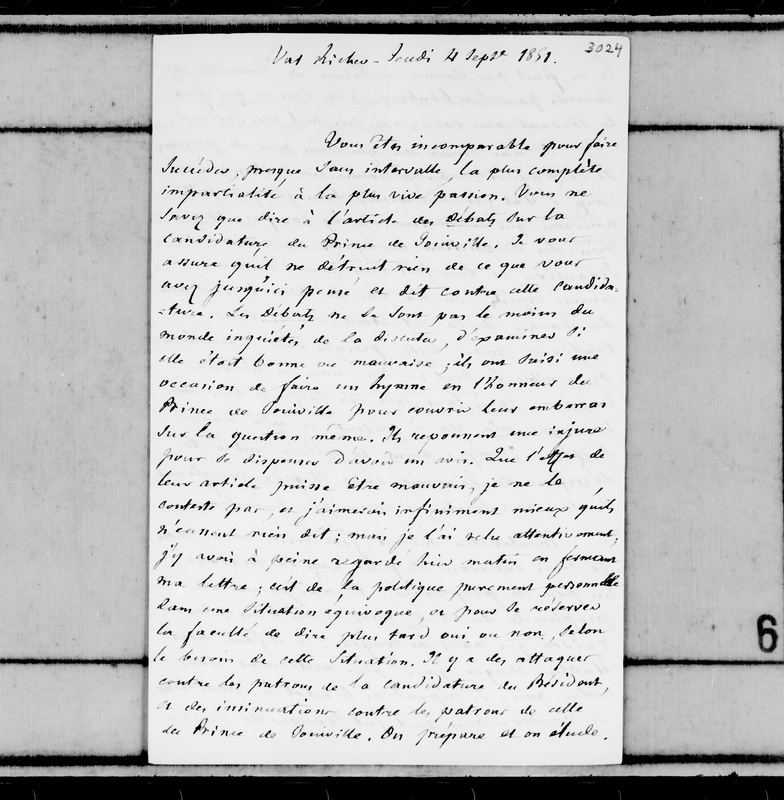 3024
Val Richer - Jeudi 4 Septe 1851.
Vous êtes incomparable pour faire
succéder, presque sans intervalle, la plus complète
impartialité à la plus vive passion. Vous ne
savez que dire à l'article des Débats sur la
candidature du Prince de Joinville. Je vous
assure qu'il ne détruit rien de ce que vous
avez jusqu'ici pensé et dit contre cette candida-
-ture. Les Débats ne se sont pas le moins du
monde inquiétés de la discuter, d'examiner si
elle était bonne ou mauvaise ; ils ont saisi une
occasion de faire un hymne en l'honneur du
Prince de Joinville pour couvrir leur embarras
sur la question même. Ils repoussent une injure
pour se dispenser d'avoir un avis. Que l'effet de
leur article puisse être mauvais, je ne le
conteste pas, et j'aimerais infiniment mieux qu'ils
n'eussent rien dit ; mais je l'ai relu attentivement ;
j'y avois à peine regardé hier matin en fermant
ma lettre ; c'est de la politique purement personnelle
dans une situation équivoque, et pour se réserver
la faculté de dire plus tard oui ou non, selon
le besoin de cette situation. Il y a des attaques
contre les patrons de la candidature du Président,
et des insinuations contre les patrons de celle
du Prince de Joinville. On prépare et on élude.
6